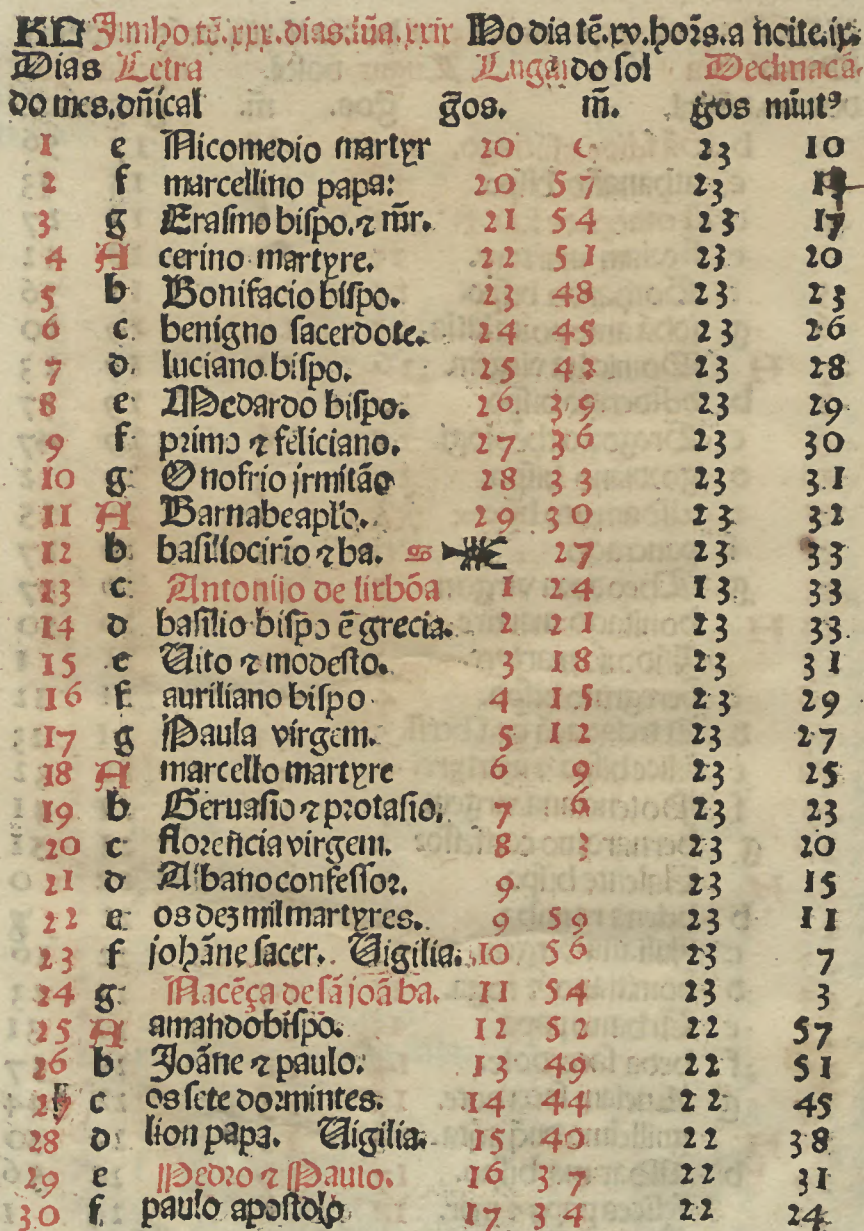 KL Junho tẽ.xxx.dias.lũa.xxix No dia tẽ.xv.hoꝛs.a noite.ix.
Dias Letra Lugar do sol Declinacã
do mes.dñical g̃os. m̃. gos miutꝰ
1 e Nicomedio martyr 20 23 10
2 f marcellino papa: 20 57 23
3 g Erasmo bispo.⁊ mr̃. 21 54 23 17
4 A cerino martyre. 22 51 23 20
5 b Bonifacio bispo. 23 48 23 23
6 c benigno sacerdote. 24 45 23 26
7 d luciano bispo. 25 42 23 28
8 e Medardo bispo. 26 39 23 29
9 f pꝛimo ⁊ feliciano. 27 36 23 30
10 g Onofrio jrmitão 28 33 23 31
11 A Barnabe apl'o. 29 30 23 32
12 b basillocirio ⁊ ba. ♋ 27 23 33
13 c Antonijo de lixbõa 1 24 13 33
14 d basilio bispo ẽ grecia. 2 21 23 33
15 e Uito ⁊ modesto. 3 18 23 31
16 f auriliano bispo 4 15 23 29
17 g Paula virgem. 5 12 23 27
18 A marcello martyre 6 9 23 25
19 b Geruasio ⁊ pꝛotasio. 7 6 23 23
20 c floꝛencia virgem. 8 3 23 20
21 d Albano confessoꝛ. 9 23 15
22 e os dez mil martyres. 9 59 23 11
23 f johãne sacer. Uigilia. 10 56 23 7
24 g Nacẽça de sã joã ba. 11 54 23 3
25 A amando bispo. 12 52 22 57
26 b Joãne ⁊ paulo. 13 49 22 51
27 c os sete doꝛmintes. 14 44 22 45
28 d lion papa. Uigilia. 15 40 22 38
29 e Pedro ⁊ Paulo. 16 37 22 31
30 f paulo apostolo 17 34 22 24